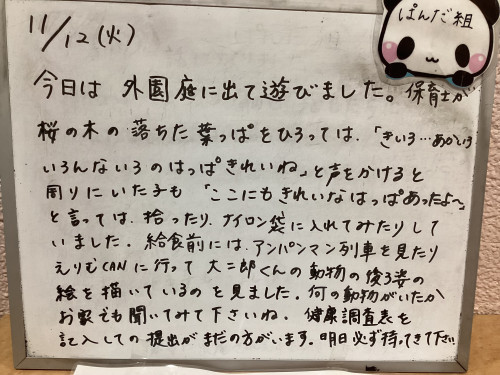 11/12(火)
ぱんだ組
今日は 外園庭に出て遊びました。保育士が
桜の木の落ちた葉っぱをひろっては、「きいろ…あかいろ
いろんないろのはっぱきれいね」と声をかけると
周りにいた子も「ここにもきれいなはっぱあったよ〜」
と言っては、拾ったり、ナイロン袋に入れてみたりして
いました。給食前には、アンパンマン列車を見たり
えりもCANに行って 大二郎くんの動物の後ろ姿の
絵を描いているのを見ました。何の動物がいたか
お家でも聞いてみて下さいね。健康調査表を
記入しての提出がまだの方がいます。明日必ず持ってきて下さい